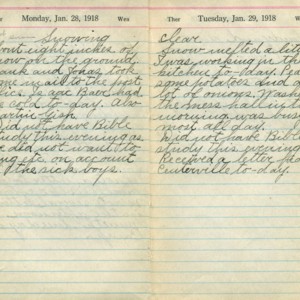 Monday, Jan. 28, 1918 Wea
Snowing
out eight inches of
on the ground
ank and Jonas took
me mail to the post
is age Babe had
cold to-day. Al
did not have Bible
tudy this evening as
e did not want to
on account
f the sick boys.
Ther Tuesday, Jan. 29, 1918
Clear.
Snow melted a litt
I was working in the
kitchen to-day. Pea
some potatoes and a
lot of onions. Wash
the mess hall in t
morning was bus
most all day.
Did not have Bib
study this evening.
Received a letter fro
Centerville to-day.